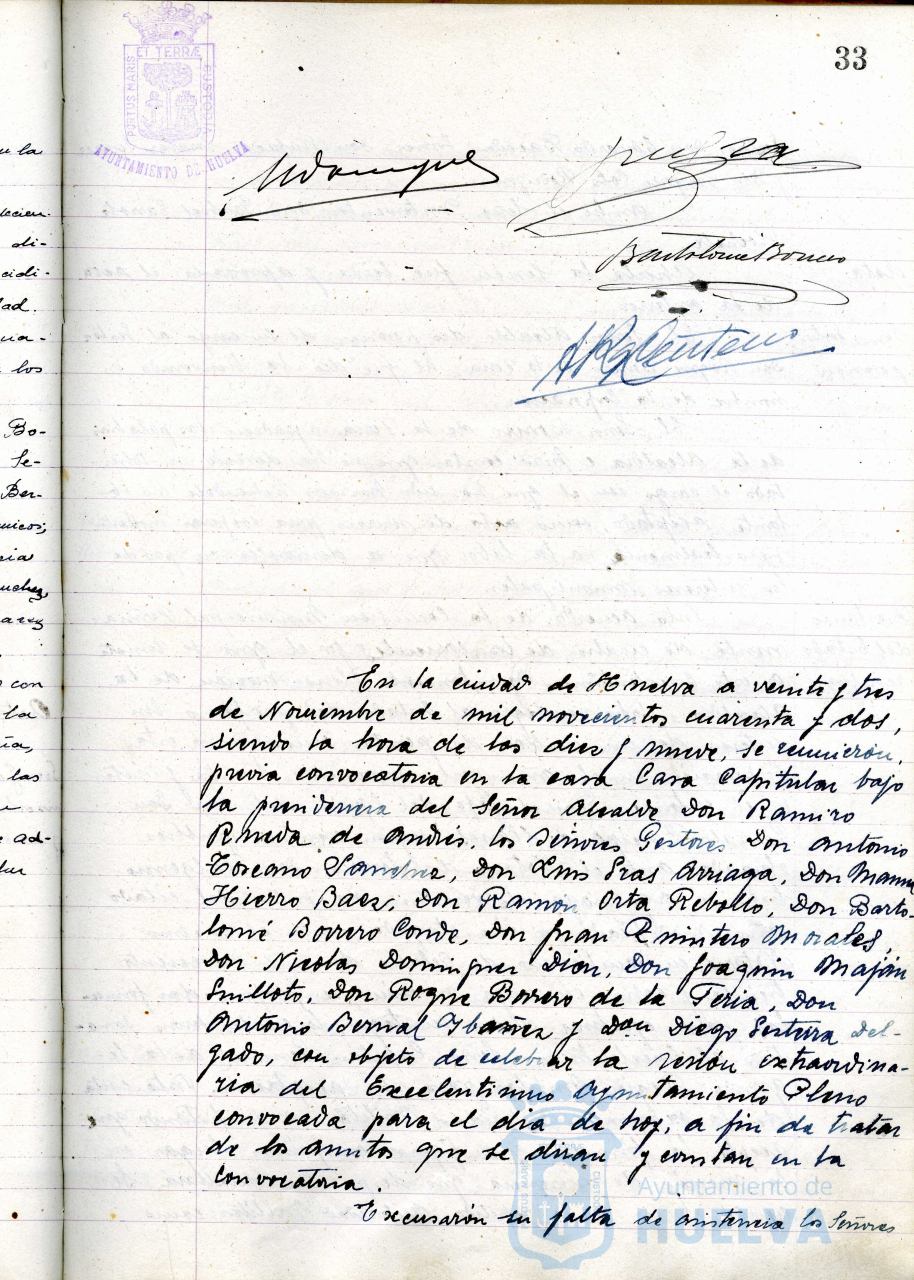 33
PORTUS MARIS ET TERRÆ CUSTODIA
AYUNTAMIENTO DE HUELVA
Bartolomé Borrero
En la ciudad de Huelva a veinte y tres
de Noviembre de mil novecientos cuarenta y dos,
siendo la hora de las diez y nueve, se reunieron,
previa convocatoria en la casa Casa Capitular bajo
la presidencia del Señor Alcalde Don Ramiro
Rueda de Andrés, los Señores Gestores Don Antonio
Toscano Sanchez, Don Luis Sras Arriaga, Don Manuel
Hierro Baez, Don Ramon Orta Rebollo, Don Barto-
lomé Borrero Conde, Don Juan Quintero Morales,
Don Nicolas Dominguez Dion, Don Joaquin Maján
Guilloto, Don Roque Borrero de la Feria, Don
Antonio Bernal Ybañez y Don Diego Del-
gado, con objeto de celebrar la sesión extraordina-
ria del Excelentisimo Ayuntamiento Pleno
convocada para el dia de hoy, a fin de tratar
de los asuntos que se diran y constan en la
convocatoria.
Excusarón su falta de asistencia los Señores
Ayuntamiento de
HUELVA
u la
di-
cidi-
dad.
los
Bo-
Se-
Ber-
con
la
las
ad-